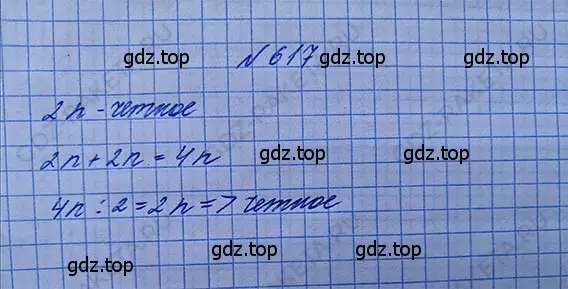 gdz.top № 617 gdz.top
2n - четное
2n + 2n = 4n gdz.top gdz.top
4n : 2 = 2n => четное
gdz.top gdz.top